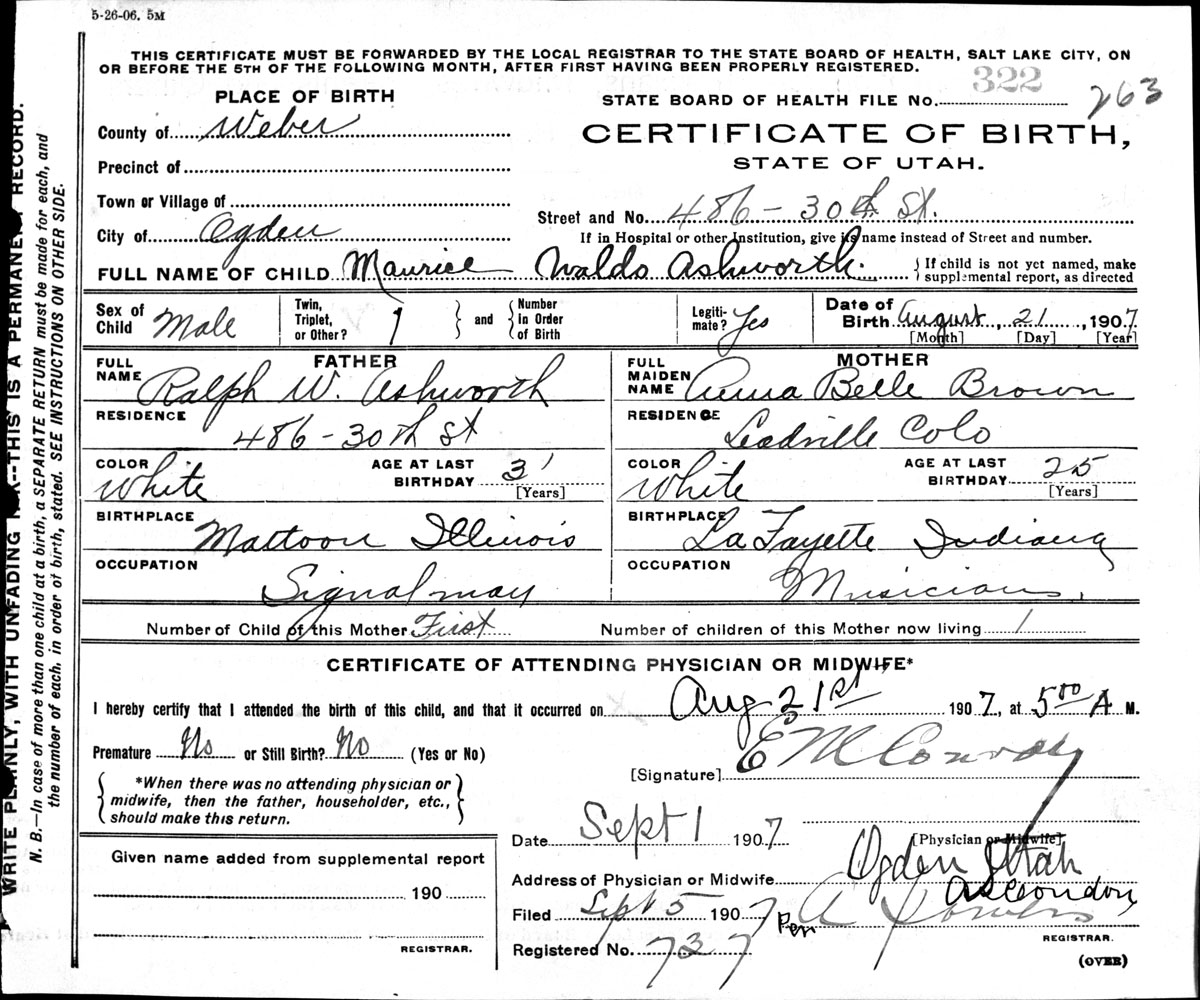 5-26-06. 5M
THIS CERTIFICATE MUST BE FORWARDED BY THE LOCAL REGISTRAR TO THE STATE BOARD OF HEALTH, SALT LAKE CITY, ON
OR BEFORE THE 5TH OF THE FOLLOWING MONTH, AFTER FIRST HAVING BEEN PROPERLY REGISTERED.
PLACE OF BIRTH
STATE BOARD OF HEALTH FILE NO. 322 263
County of Weber
CERTIFICATE OF BIRTH,
STATE OF UTAH.
Precinct of
Town or Village of
Street and No. 486 - 30th St.
City of Ogden
If in Hospital or other Institution, give its name instead of Street and number.
FULL NAME OF CHILD Maurice Waldo Ashworth. { If child is not yet named, make
supplemental report, as directed
Sex of Child Male
Twin, Triplet, or Other? 1 } and { Number in Order of Birth
Legiti-mate? Yes
Date of Birth August, 21, 1907
[Month] [Day] [Year]
FATHER
FULL NAME Ralph W. Ashworth
MOTHER
FULL MAIDEN NAME Anna Belle Brown
RESIDENCE 486 - 30th St
RESIDENCE Leadville Colo
COLOR White AGE AT LAST BIRTHDAY 31 [Years]
COLOR White AGE AT LAST BIRTHDAY 25 [Years]
BIRTHPLACE Mattoon Illinois
BIRTHPLACE La Fayette Indiana
OCCUPATION Signalman
OCCUPATION Musician.
Number of Child of this Mother First Number of children of this Mother now living 1
CERTIFICATE OF ATTENDING PHYSICIAN OR MIDWIFE*
I hereby certify that I attended the birth of this child, and that it occurred on Aug 21st 1907, at 5:00 A M.
Premature No or Still Birth? No (Yes or No)
[Signature] E M Conroy
*When there was no attending physician or
midwife, then the father, householder, etc.,
should make this return.
Date Sept 1 1907
[Physician or Midwife]
Given name added from supplemental report
190
REGISTRAR.
Address of Physician or Midwife Ogden Utah
Filed Sept 5 1907 Per AS Condon
REGISTRAR.
Registered No. 737
(OVER)
WRITE PLAINLY, WITH UNFADING INK--THIS IS A PERMANENT RECORD.
N. B.—In case of more than one child at a birth, a SEPARATE RETURN must be made for each, and
the number of each, in order of birth, stated. SEE INSTRUCTIONS ON OTHER SIDE.